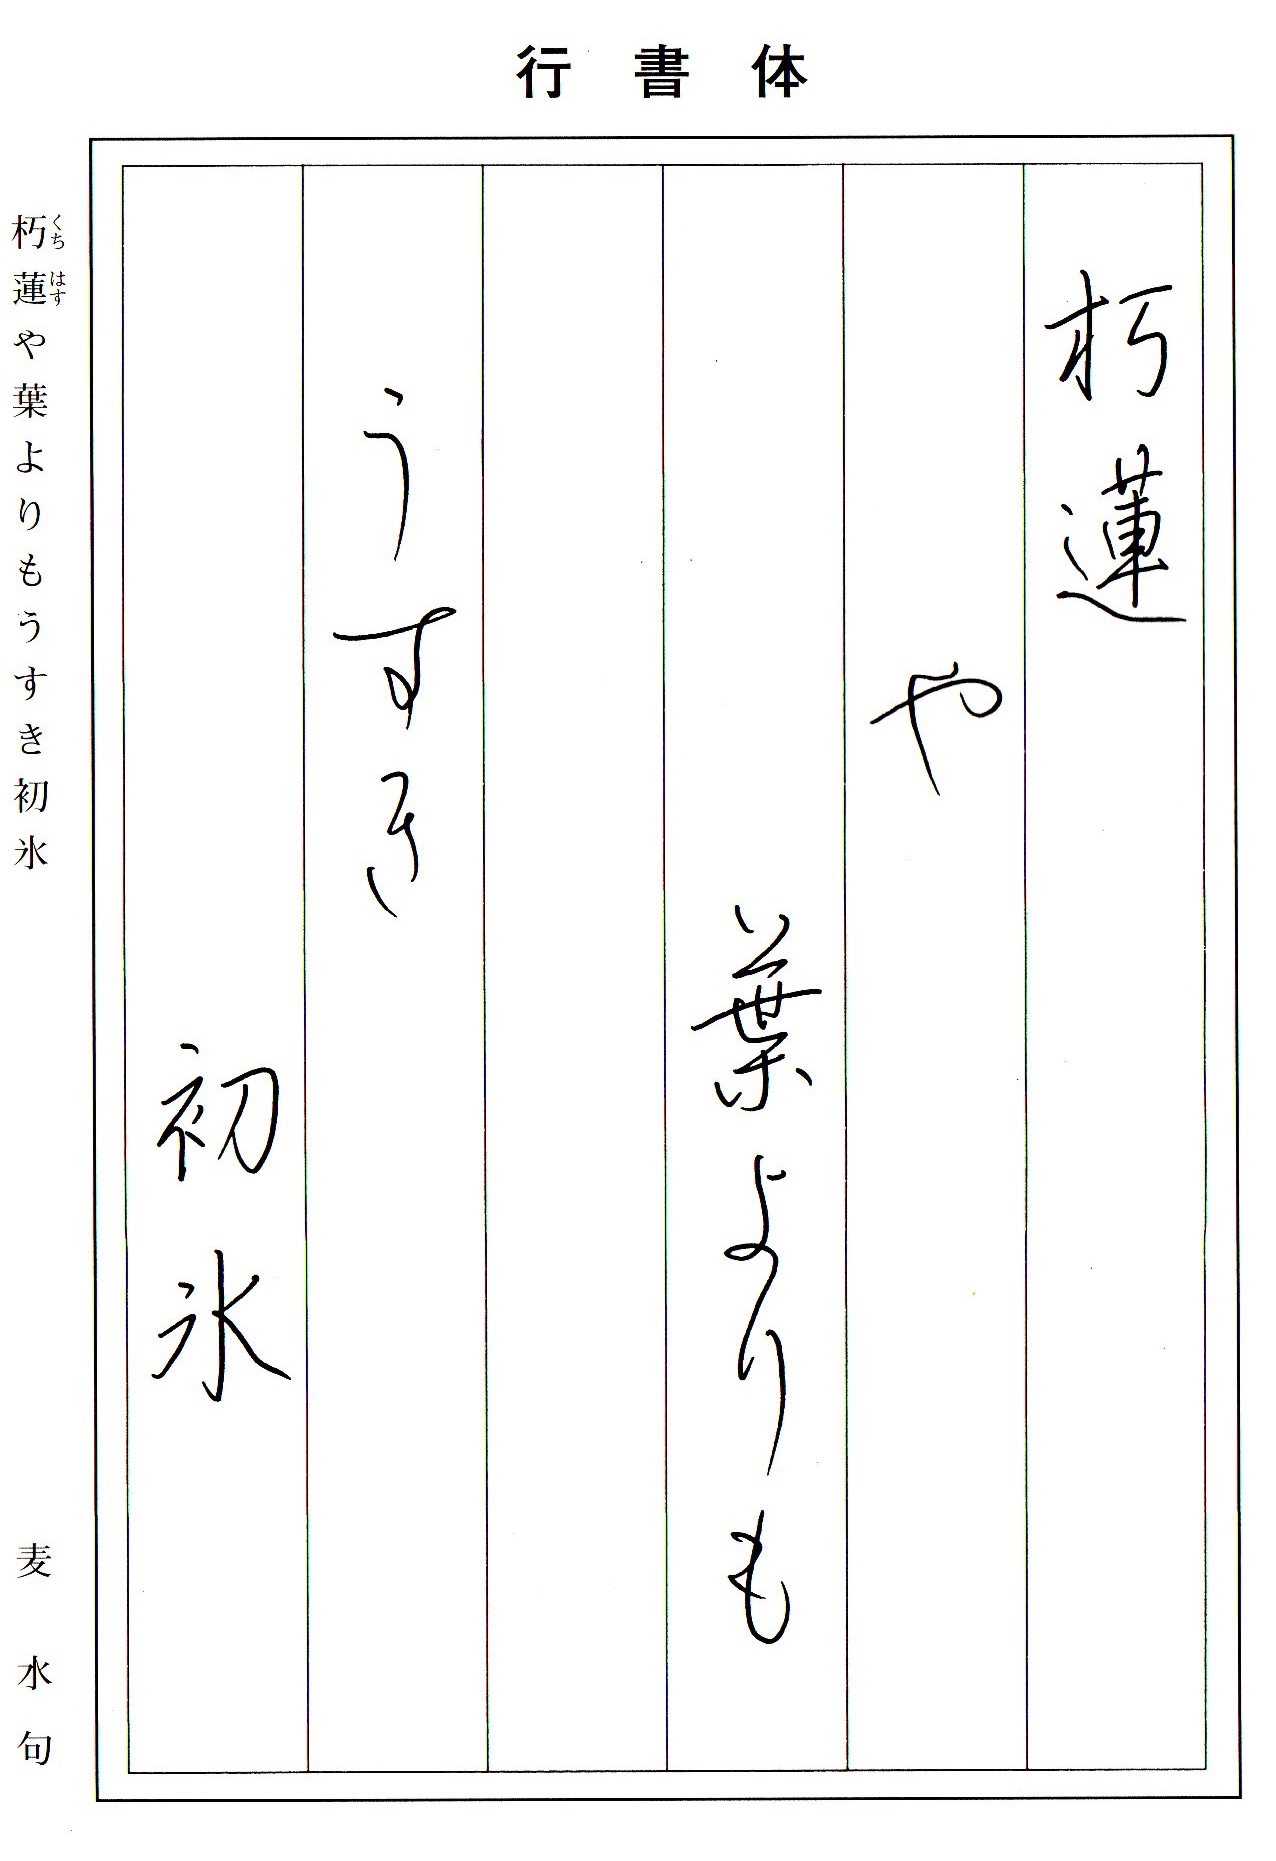 行書体
朽蓮
や
葉よりも
うすき
初氷
朽蓮や葉よりもうすき初氷
くち
はす
麦水句